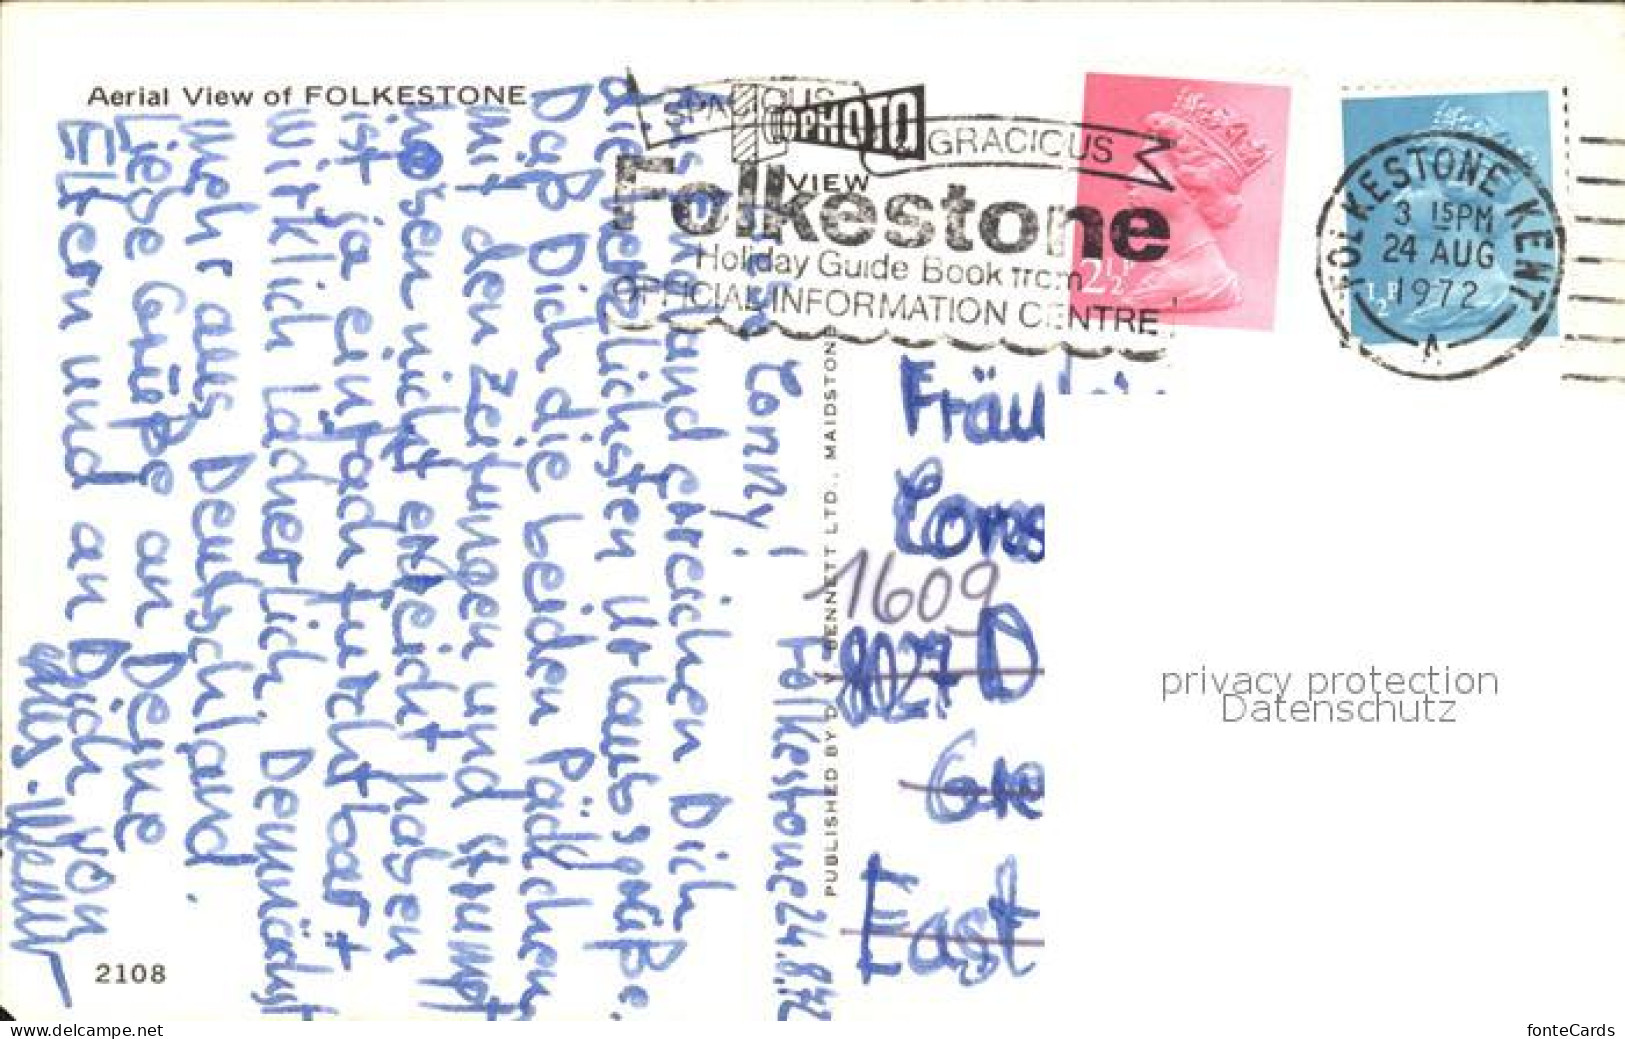 Aerial View of FOLKESTONE
SPACIOUS
GRACIOUS
TOPHOTO
VIEW
Folkestone
Holiday Guide Book from
OFFICIAL INFORMATION CENTRE
2½P
½P
FOLKESTONE KENT
3 15PM
24 AUG
1972
A
Folkestone 24.8.72
Conny!
Aus England erreichen Dich
die herzlichsten Urlaubsgrüße.
Daß Dich die beiden Päckchen
mit den Zeitungen und Strumpf
hosen nicht erreicht haben
ist ja einfach furchtbar +
wirklich lächerlich. Demnächst
mehr aus Deutschland.
Liebe Grüße an Deine
Eltern und an Dich von
PUBLISHED BY D. V. BENNETT LTD., MAIDSTONE
Fräulein
Cons
1609
8027 D
Ga
East
2108
privacy protection
Datenschutz
www.delcampe.net
fonteCards